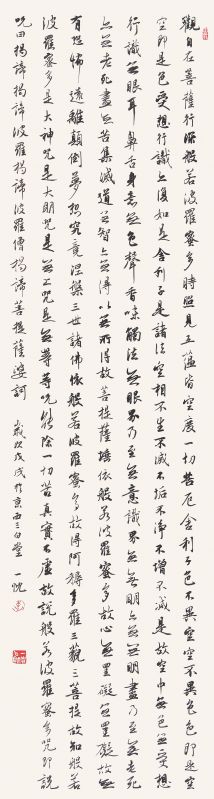 觀自在菩薩行深般若波羅蜜多時照見五蘊皆空度一切苦厄舍利子色不異空空不異色色即是空
空即是色受想行識亦復如是舍利子是諸法空相不生不滅不垢不淨不增不減是故空中無色無受想
行識無眼耳鼻舌身意無色聲香味觸法無眼界乃至無意識界無無明亦無無明盡乃至無老死
亦無老死盡無苦集滅道無智亦無得以無所得故菩提薩埵依般若波羅蜜多故心無罣礙無罣礙故無
有恐怖遠離顛倒夢想究竟涅槃三世諸佛依般若波羅蜜多故得阿耨多羅三藐三菩提故知般若
波羅蜜多是大神咒是大明咒是無上咒是無等等咒能除一切苦真實不虛故說般若波羅蜜多咒即說
咒曰揭諦揭諦波羅揭諦波羅僧揭諦菩提薩婆訶 歲次戊戌於京西三白堂 一忱